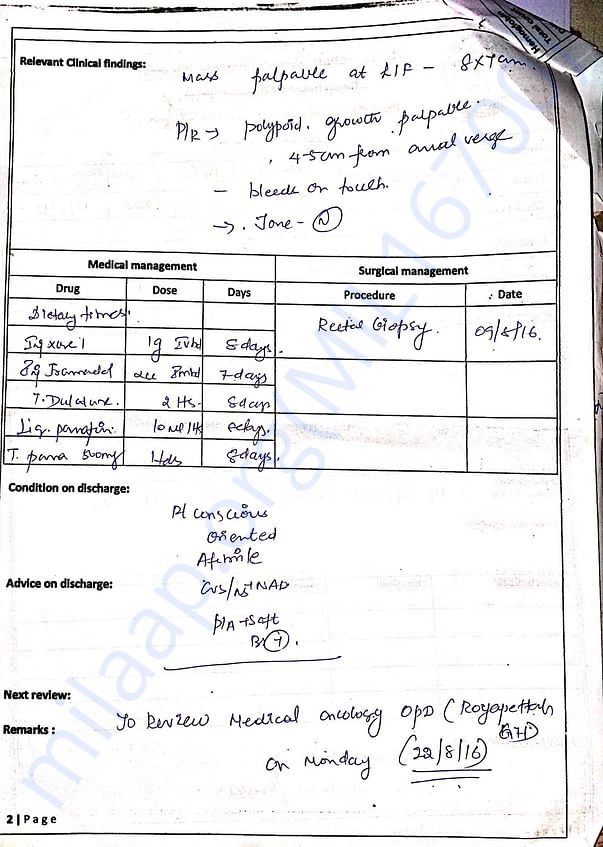 Relevant Clinical findings:
Mass palpable at LIF - 8x7cm.
P/R → polypoid growth palpable.
4-5cm from anal verge
- bleeds on touch.
→ Tone - N
Medical management
Surgical management
Drug
Dose
Days
Procedure
Date
Dietary fibres
Rectal Biopsy.
09/8/16.
1g
8 days.
7 days
2 Hs.
8 days
Liq. paraffin
10 ml Hs
T. para 500mg
8 days.
Condition on discharge:
Pt conscious
Oriented
Afebrile
Advice on discharge:
NAD
P/A → Soft
Next review:
Remarks :
To Review Medical oncology OPD (Royapettah GH)
on Monday (22/8/16)
2 | Page
milaap.org/MIL16700